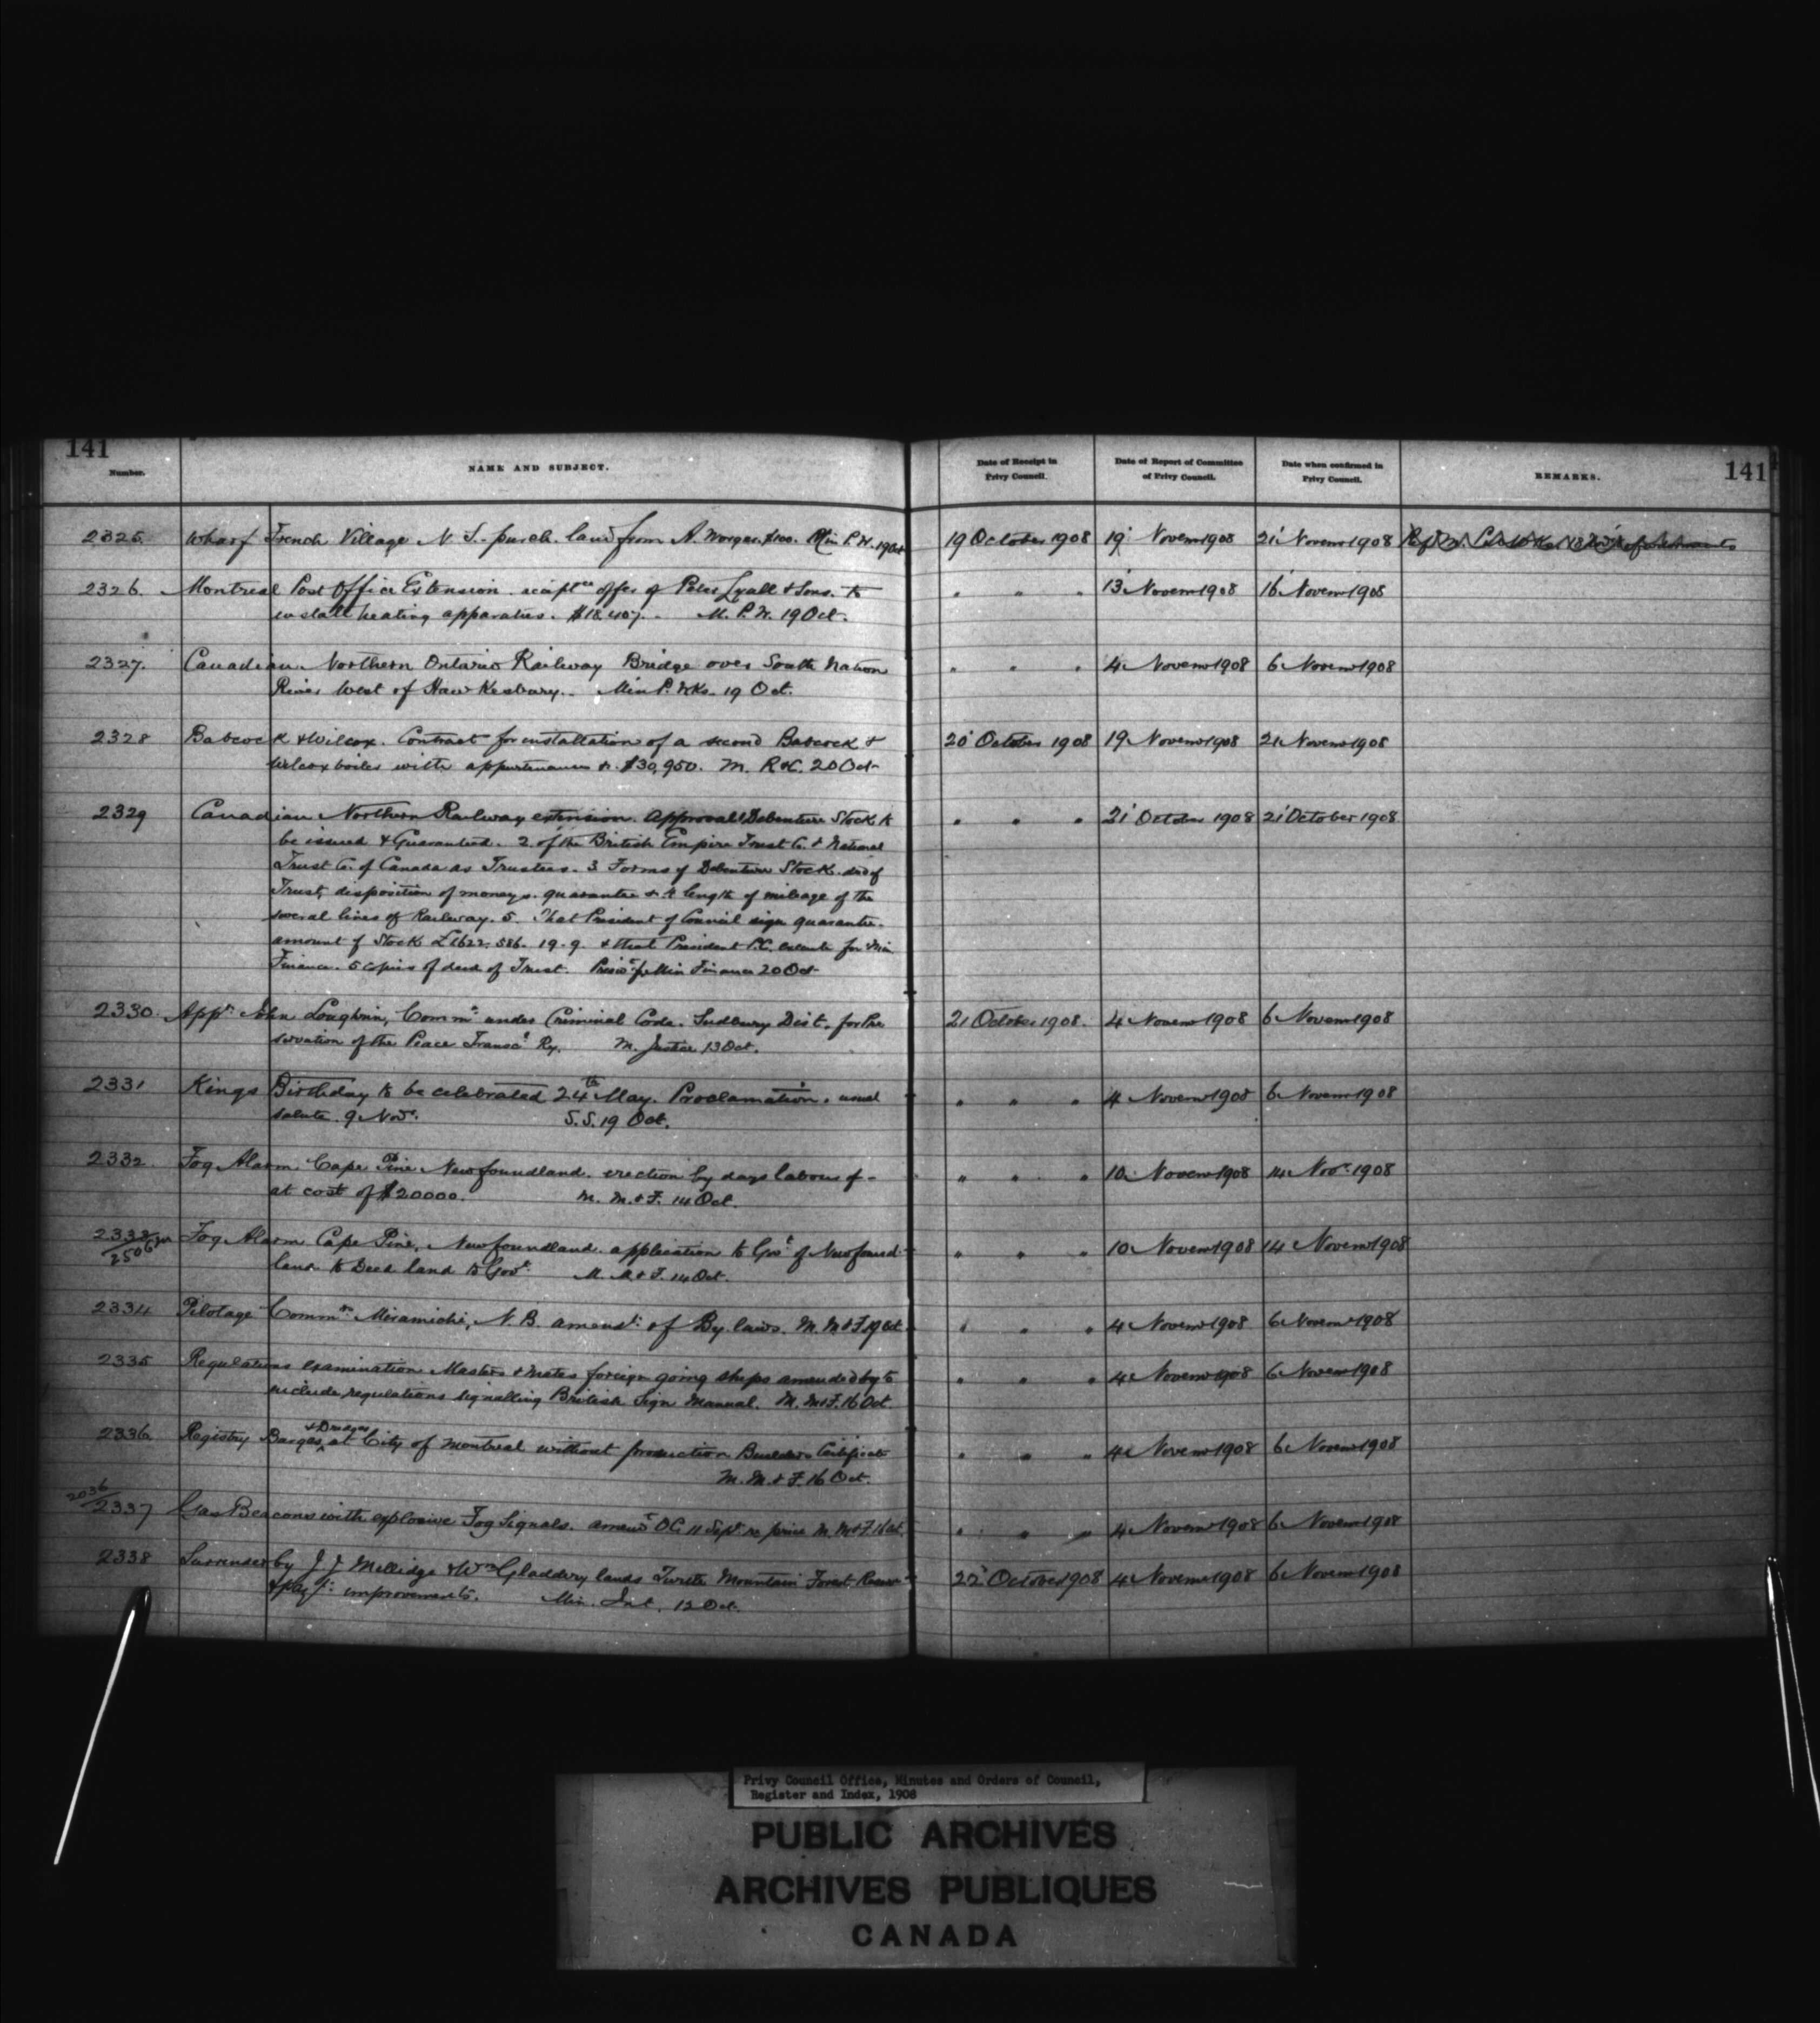 141
Number.
NAME AND SUBJECT.
Date of Receipt in
Privy Council.
Date of Report of Committee
of Privy Council.
Date when confirmed in
Privy Council.
REMARKS.
141
2325 Wharf French Village N. S. purch. land from A. Morgan $100. Min P. W. 19 Oct 19 October 1908 19 Novemr 1908 21 Novemr 1908
2326. Montreal Post Office Extension. accept ce offer of Peter Lyall & Sons. to " " " 13 Novemr 1908 16 Novemr 1908
install heating apparatus. $18,407. M. P. W. 19 Oct.
2327. Canadian Northern Ontario Railway Bridge over South Nation " " " 4 Novemr 1908 6 Novemr 1908
River West of Hawkesbury. Min P. Wks. 19 Oct.
2328 Babcock & Wilcox. Contract for installation of a second Babcock & 20 October 1908 19 Novemr 1908 21 Novemr 1908
Wilcox boiler with appurtenances &. $30,950. M. R & C. 20 Oct
2329 Canadian Northern Railway extension. Approval 1. Debenture Stock to " " " 21 October 1908 21 October 1908
be issued & Guaranteed. 2. of the British Empire Trust Co. & National
Trust Co. of Canada as Trustees. 3 Forms of Debenture Stock. deed of
Trust, disposition of moneys. guarantee & 4 length of mileage of the
several lines of Railway. 5. That President of Council sign guarantee.
amount of Stock £1622,586. 19. 9. & that President P.C. execute for Min
Finance. 5 copies of deed of Trust. Min Finance 20 Oct
2330. Appt John Loughrin, Commr under Criminal Code. Sudbury Dist. for Pre 21 October 1908. 4 Novemr 1908 6 Novemr 1908
servation of the Peace Transct Ry. M. Justice 13 Oct.
2331 Kings Birthday to be celebrated 24th May. Proclamation. usual " " " 4 Novemr 1908 6 Novemr 1908
salute. 9 Novr. S. S. 19 Oct.
2332. Fog Alarm Cape Pine Newfoundland. erection by days labour of - " " " 10 Novemr 1908 14 Novr 1908
at cost of $20000. M. M. & F. 14 Oct.
2333 Fog Alarm Cape Pine, Newfoundland. application to Govt of Newfound- " " " 10 Novemr 1908 14 Novemr 1908
2506
land to Deed land to Govt. M. M. & F. 14 Oct.
2334 Pilotage Commrs Miramichi, N. B. amendt of By laws. M. M & F 19 Oct " " " 4 Novemr 1908 6 Novemr 1908
2335 Regulations examination Masters & Mates foreign going ships amended by to " " " 4 Novemr 1908 6 Novemr 1908
include regulations signalling British Sign Manual. M. M & F. 16 Oct
2336 Registry Barges & Dredges at City of Montreal without production Builders Certificate " " " 4 Novemr 1908 6 Novemr 1908
M. M. & F. 16 Oct.
2036
2337 Gas Beacons with explosive Fog Signals. amend OC 11 Sept re price M. M & F. 16 Oct. " " " 4 Novemr 1908 6 Novemr 1908
2338 Surrender by J. J. Mellidge & Wm Gladdery lands Turtle Mountain Forest Reserve 22 October 1908 4 Novemr 1908 6 Novemr 1908
& pay t. improvements. Min. Int. 12 Oct.
Privy Council Office, Minutes and Orders of Council,
Register and Index, 1908
PUBLIC ARCHIVES
ARCHIVES PUBLIQUES
CANADA